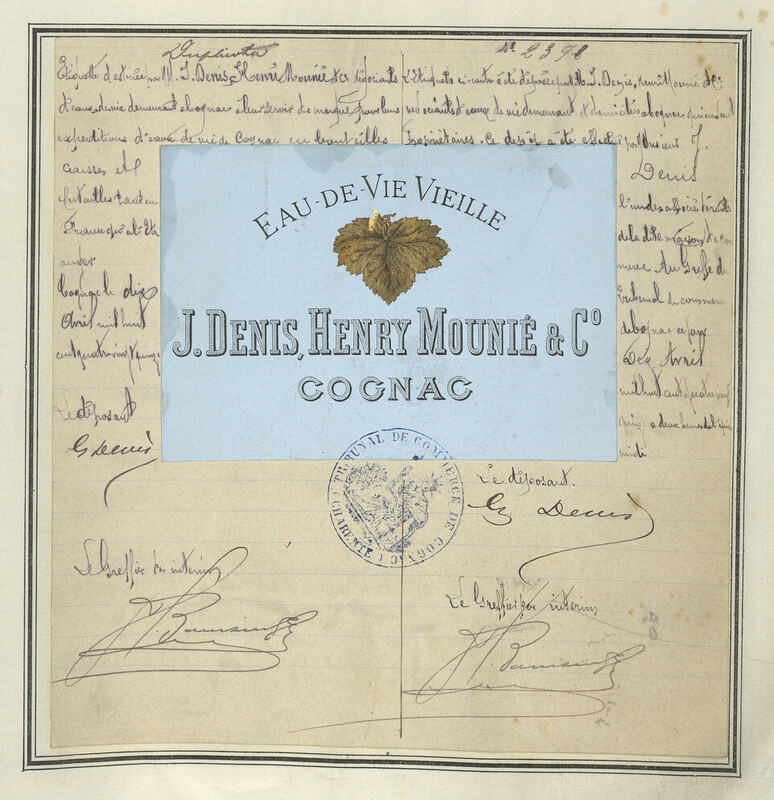 Duplicata
Etiquette destinée par M. J. Denis, Henri Mounié & Cie négociants
d'eaux de vie demeurant à Cognac à leur servir de marque pour leurs
expéditions d'eaux de vie de Cognac en bouteilles
caisses et
futailles tant en
France qu'à l'Et
ranger
Cognac le dix
Avril mil huit
cent quatre vingt quinze
Le déposant
G Denis
Le Greffier par intérim
N° 2398
L'étiquette ci-contre a été déposée par M. J. Denis, Henri Mounié & Cie
négociants d'eaux de vie demeurant et domiciliés à Cognac qui en sont
propriétaires. Ce dépôt a été effectué par Monsieur J.
Denis
l'un des associés gérants
de la dite maison de com
merce Au Greffe du
Tribunal de commerce
de Cognac ce jour
Dix Avril
mil huit cent quatre vingt
quinze à deux heures de l'après
midi
Le déposant.
G Denis
Le Greffier par intérim
EAU-DE-VIE VIEILLE
J. DENIS, HENRY MOUNIÉ & Cº
COGNAC
TRIBUNAL DE COMMERCE DE COGNAC (CHARENTE)